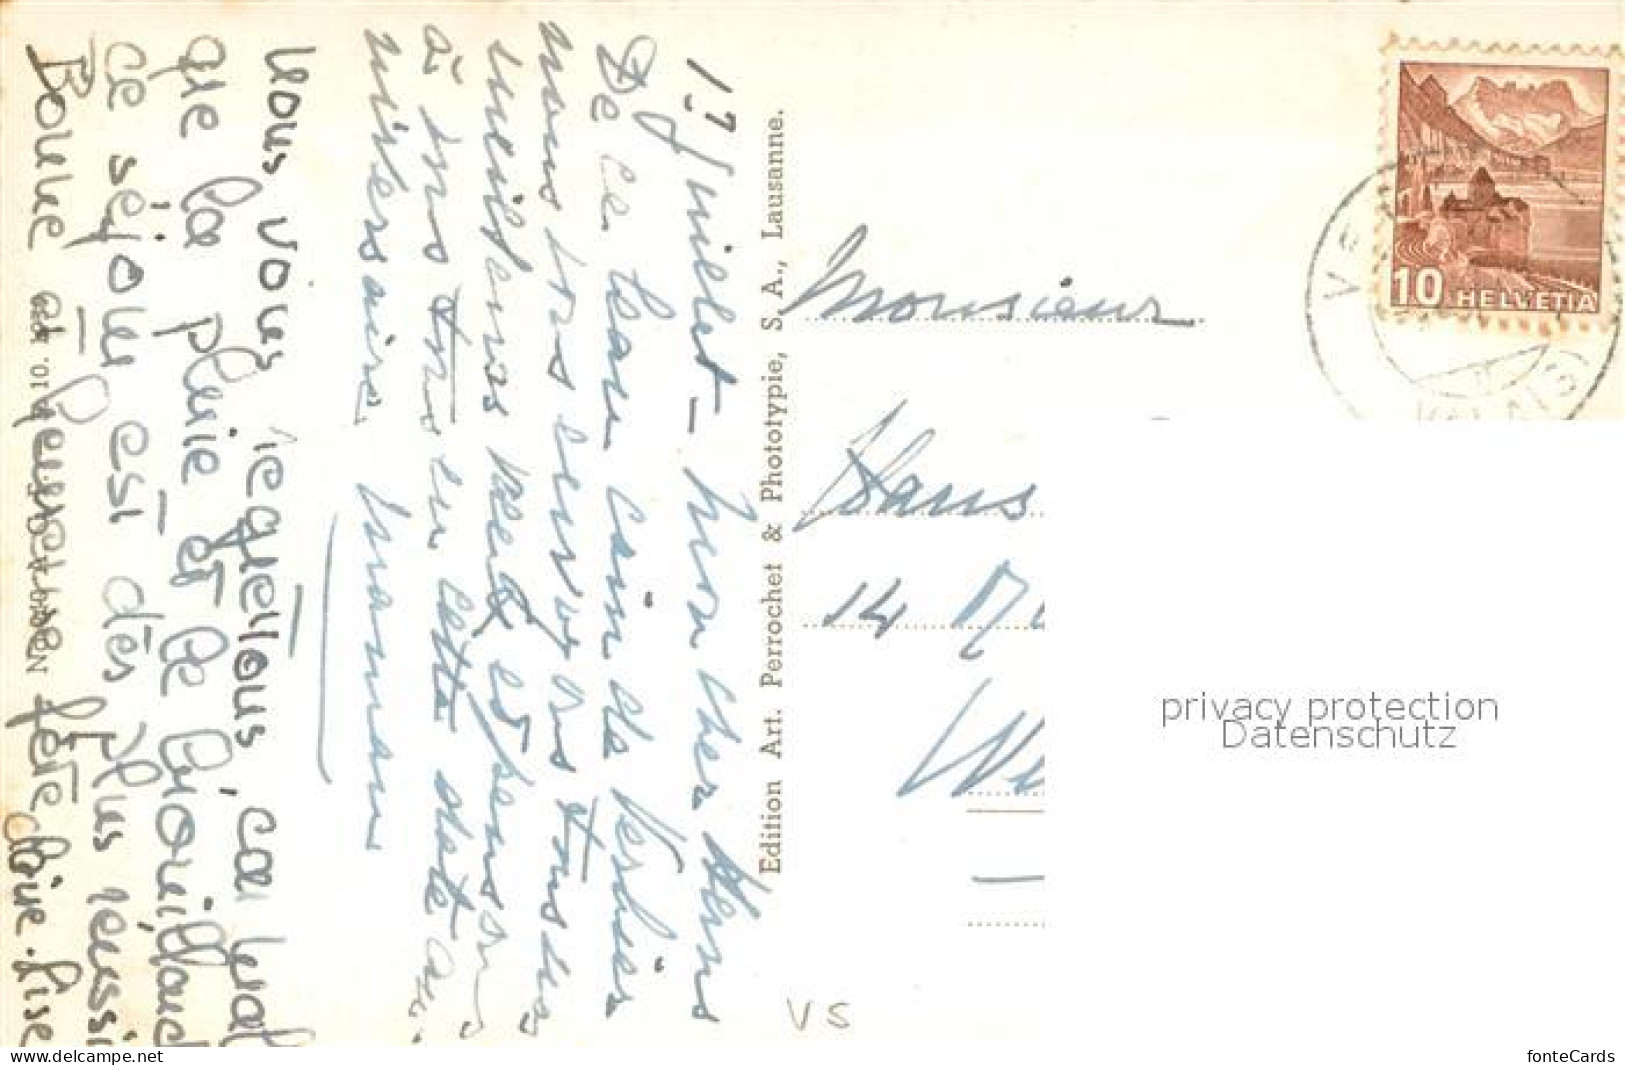 17 Juillet — mon cher Hans
De ce beau coin de Verbier
nous vous envoyons tous nos
meilleurs vœux et pensons
à vous tous en cette date an-
niversaire. maman
vous voies regettous, car mal
que la pluie et le brouillard
ce séjour est des plus réussi
Bonne et heureuse fête d'Anne-Lise
10.
Edition Art. Perrochet & Phototypie, S. A., Lausanne.
Monsieur
Hans
14
10 HELVETIA
privacy protection
Datenschutz
VS
www.delcampe.net
fonteCards